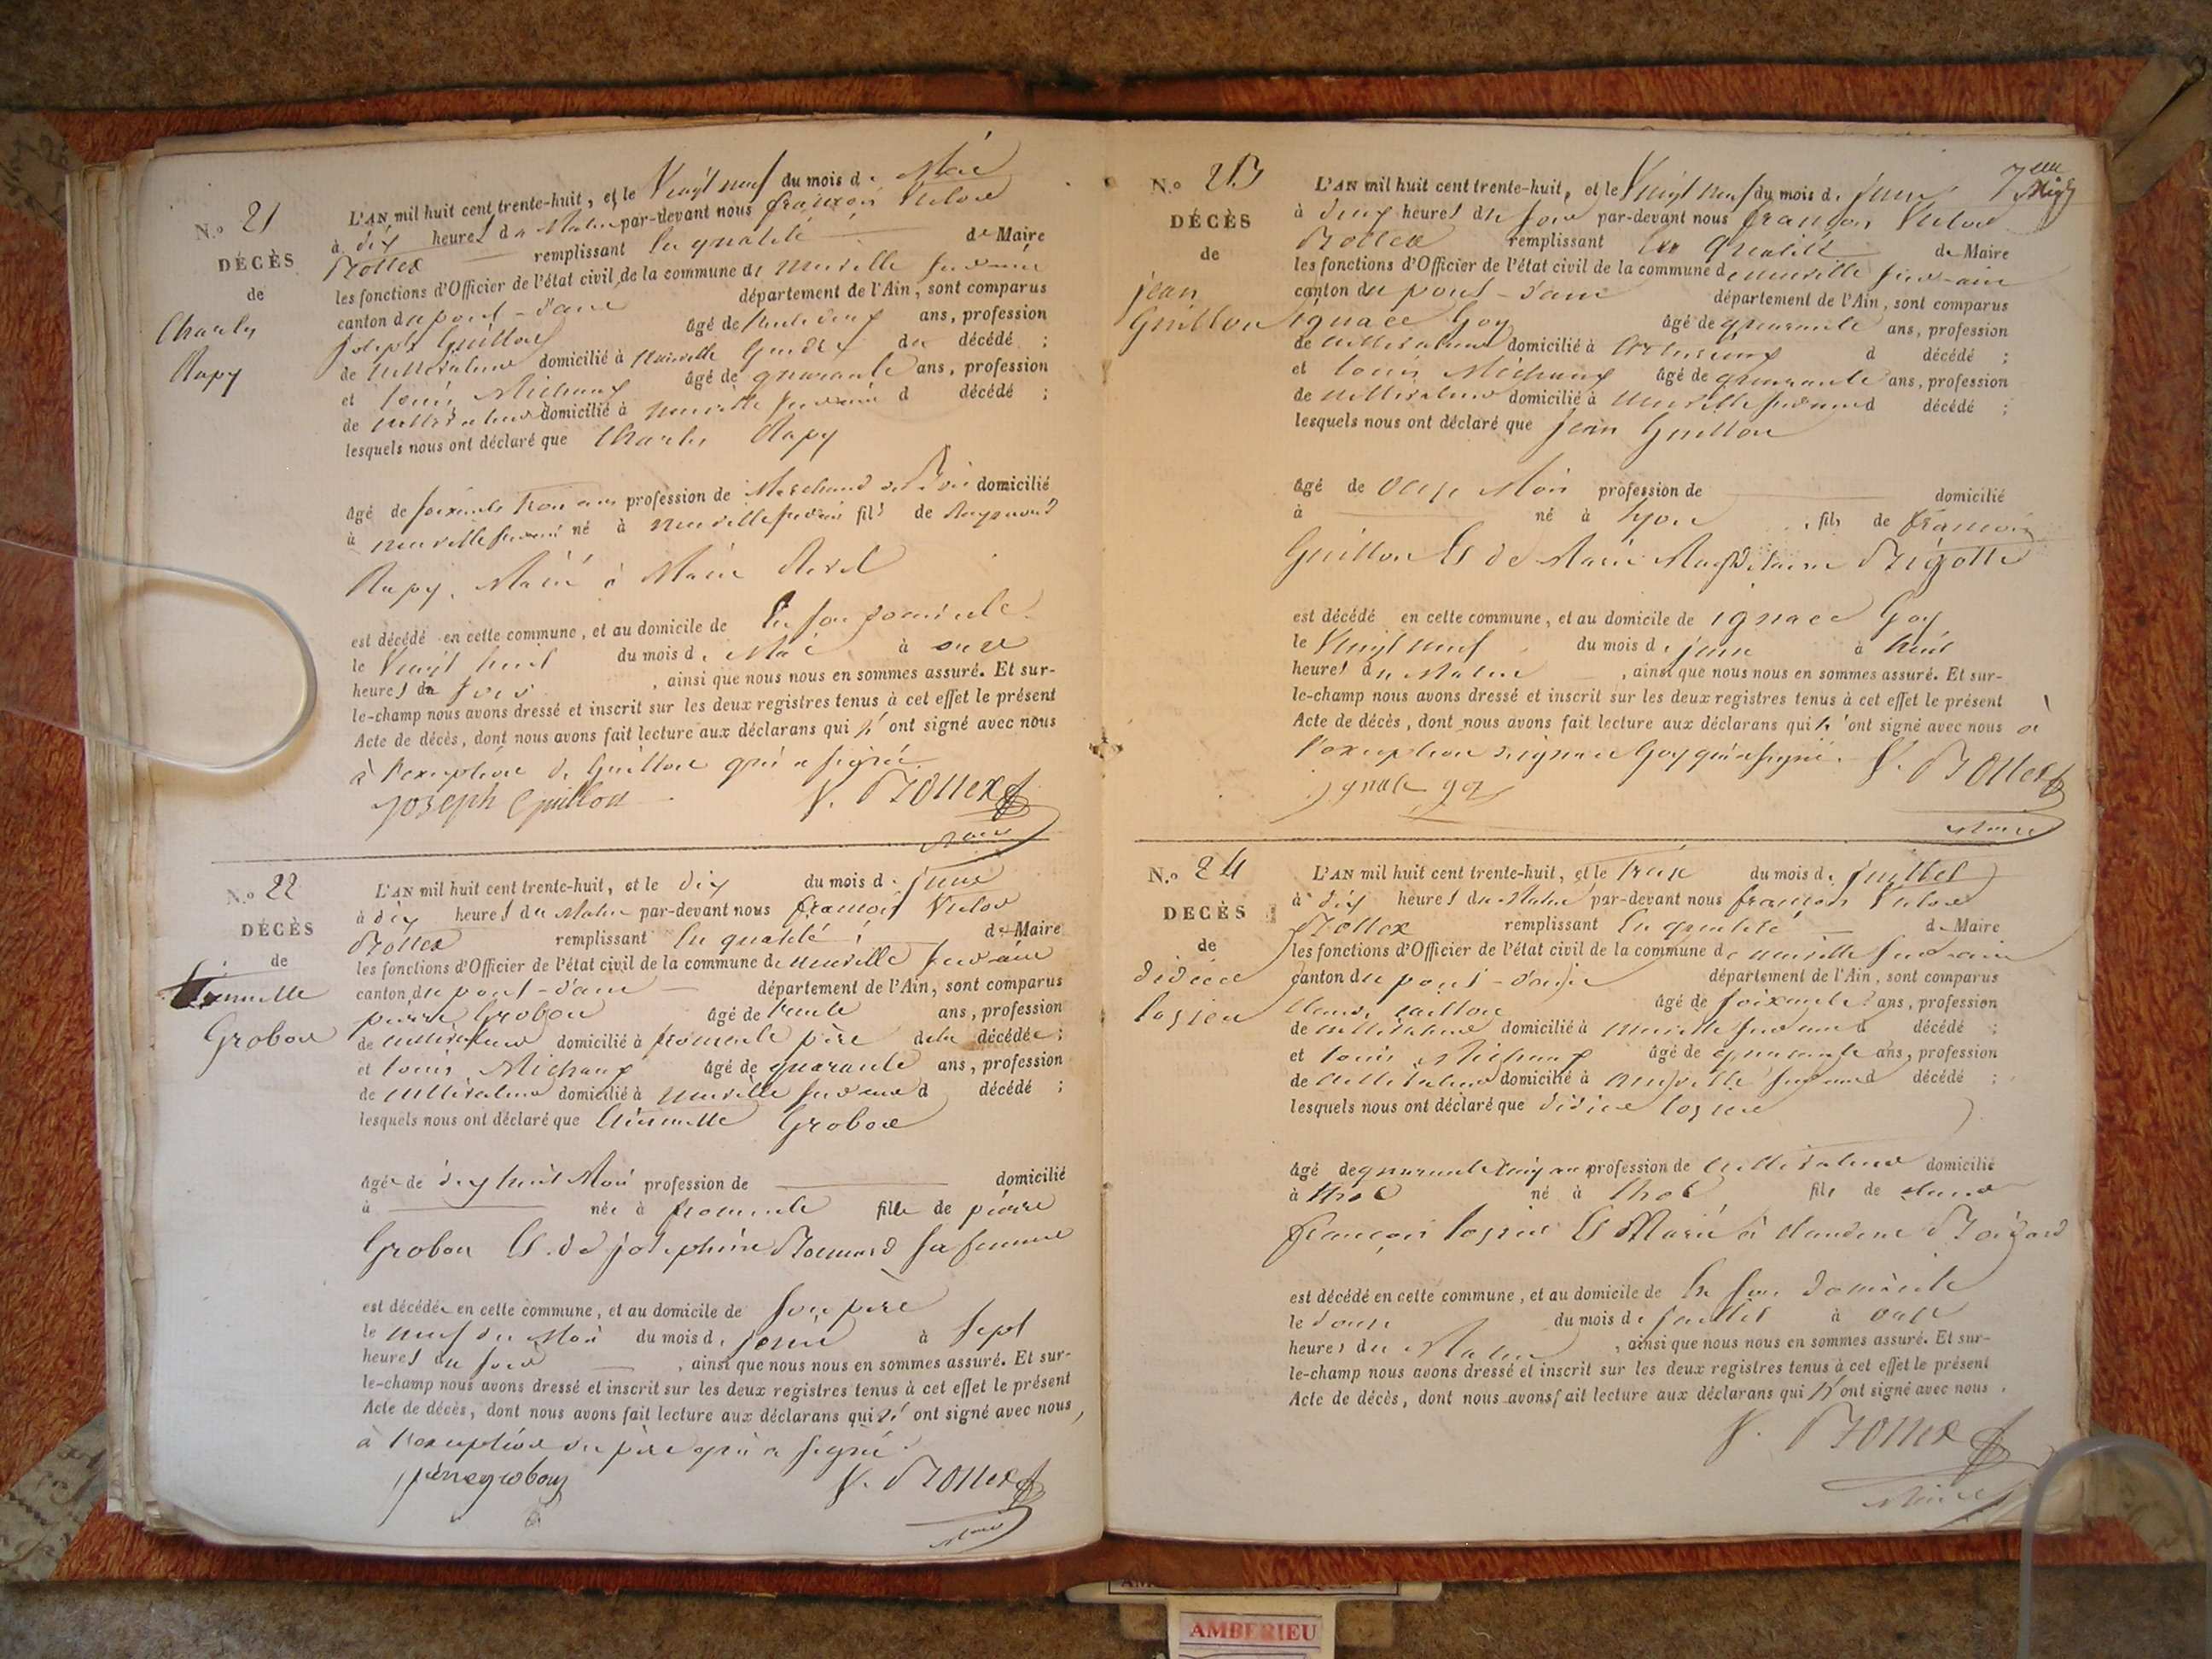 N.º 21
DÉCÈS
de
Charles
Rapy
L'AN mil huit cent trente-huit, et le Vingt neuf du mois de Mai
à dix heures du Matin par-devant nous françois Victor
remplissant En qualité de Maire
les fonctions d'Officier de l'état civil de la commune de neuville sur ain
canton du pont-d'ain département de l'Ain, sont comparus
joseph Guillon âgé de ans, profession
de cultivateur domicilié à Neuville du décédé ;
et louis Michaux âgé de quarante ans, profession
de cultivateur domicilié à neuville sur ain d décédé ;
lesquels nous ont déclaré que Charles Rapy
âgé de soixante trois ans profession de Marchand de domicilié
à neuville sur ain né à neuville sur ain fils de Raymond
Rapy, Marié à Marie
est décédé en cette commune, et au domicile de En son domicile
le Vingt huit du mois de Mai à onze
heures du soir, ainsi que nous nous en sommes assuré. Et sur-
le-champ nous avons dressé et inscrit sur les deux registres tenus à cet effet le présent
Acte de décès, dont nous avons fait lecture aux déclarans qui n'ont signé avec nous
à l'exception de Guillon qui a signé.
joseph Guillon
Maire
N.º 22
DÉCÈS
de
Grobon
L'AN mil huit cent trente-huit, et le dix du mois de juin
à dix heures du Matin par-devant nous françois Victor
remplissant En qualité de Maire
les fonctions d'Officier de l'état civil de la commune de neuville sur ain
canton du pont-d'ain département de l'Ain, sont comparus
pierre Grobon âgé de trente ans, profession
de cultivateur domicilié à fromente père de la décédée ;
et louis Michaux âgé de quarante ans, profession
de cultivateur domicilié à neuville sur ain d décédé ;
lesquels nous ont déclaré que Grobon
âgée de dix huit Mois profession de domicilié
à née à fromente fille de pierre
Grobon Et de josephine sa femme
est décédée en cette commune, et au domicile de son père
le neuf du Mois du mois de juin à sept
heures du soir, ainsi que nous nous en sommes assuré. Et sur-
le-champ nous avons dressé et inscrit sur les deux registres tenus à cet effet le présent
Acte de décès, dont nous avons fait lecture aux déclarans qui n'ont signé avec nous,
à l'exception du père qui a signé.
pierre grobon
Maire
N.º 23
DÉCÈS
de
jean
Guillon
L'AN mil huit cent trente-huit, et le Vingt neuf du mois de juin
à deux heures du soir par-devant nous françois Victor
remplissant En qualité de Maire
les fonctions d'Officier de l'état civil de la commune de neuville sur-ain
canton du pont-d'ain département de l'Ain, sont comparus
ignace Goy âgé de quarante ans, profession
de cultivateur domicilié à d décédé ;
et louis Michaux âgé de quarante ans, profession
de cultivateur domicilié à neuville sur ain d décédé ;
lesquels nous ont déclaré que jean Guillon
âgé de onze Mois profession de domicilié
à né à lyon, fils de françois
Guillon Et de Marie Magdelaine
est décédé en cette commune, et au domicile de ignace Goy
le Vingt neuf du mois de juin à huit
heures du Matin, ainsi que nous nous en sommes assuré. Et sur-
le-champ nous avons dressé et inscrit sur les deux registres tenus à cet effet le présent
Acte de décès, dont nous avons fait lecture aux déclarans qui n'ont signé avec nous à
l'exception d'ignace Goy qui a signé.
Maire
N.º 24
DÉCÈS
de
didier
L'AN mil huit cent trente-huit, et le treize du mois de juillet
à dix heures du Matin par-devant nous françois Victor
remplissant En qualité de Maire
les fonctions d'Officier de l'état civil de la commune de neuville sur ain
canton du pont-d'ain département de l'Ain, sont comparus
âgé de soixante ans, profession
de cultivateur domicilié à neuville sur ain d décédé ;
et louis Michaux âgé de quarante ans, profession
de cultivateur domicilié à neuville sur ain d décédé ;
lesquels nous ont déclaré que didier
âgé de quarante cinq ans profession de cultivateur domicilié
à né à fils de
françois Et Marié à Claudine
est décédé en cette commune, et au domicile de En son domicile
le douze du mois de juillet à onze
heures du Matin, ainsi que nous nous en sommes assuré. Et sur-
le-champ nous avons dressé et inscrit sur les deux registres tenus à cet effet le présent
Acte de décès, dont nous avons fait lecture aux déclarans qui n'ont signé avec nous.
Maire
AMBERIEU